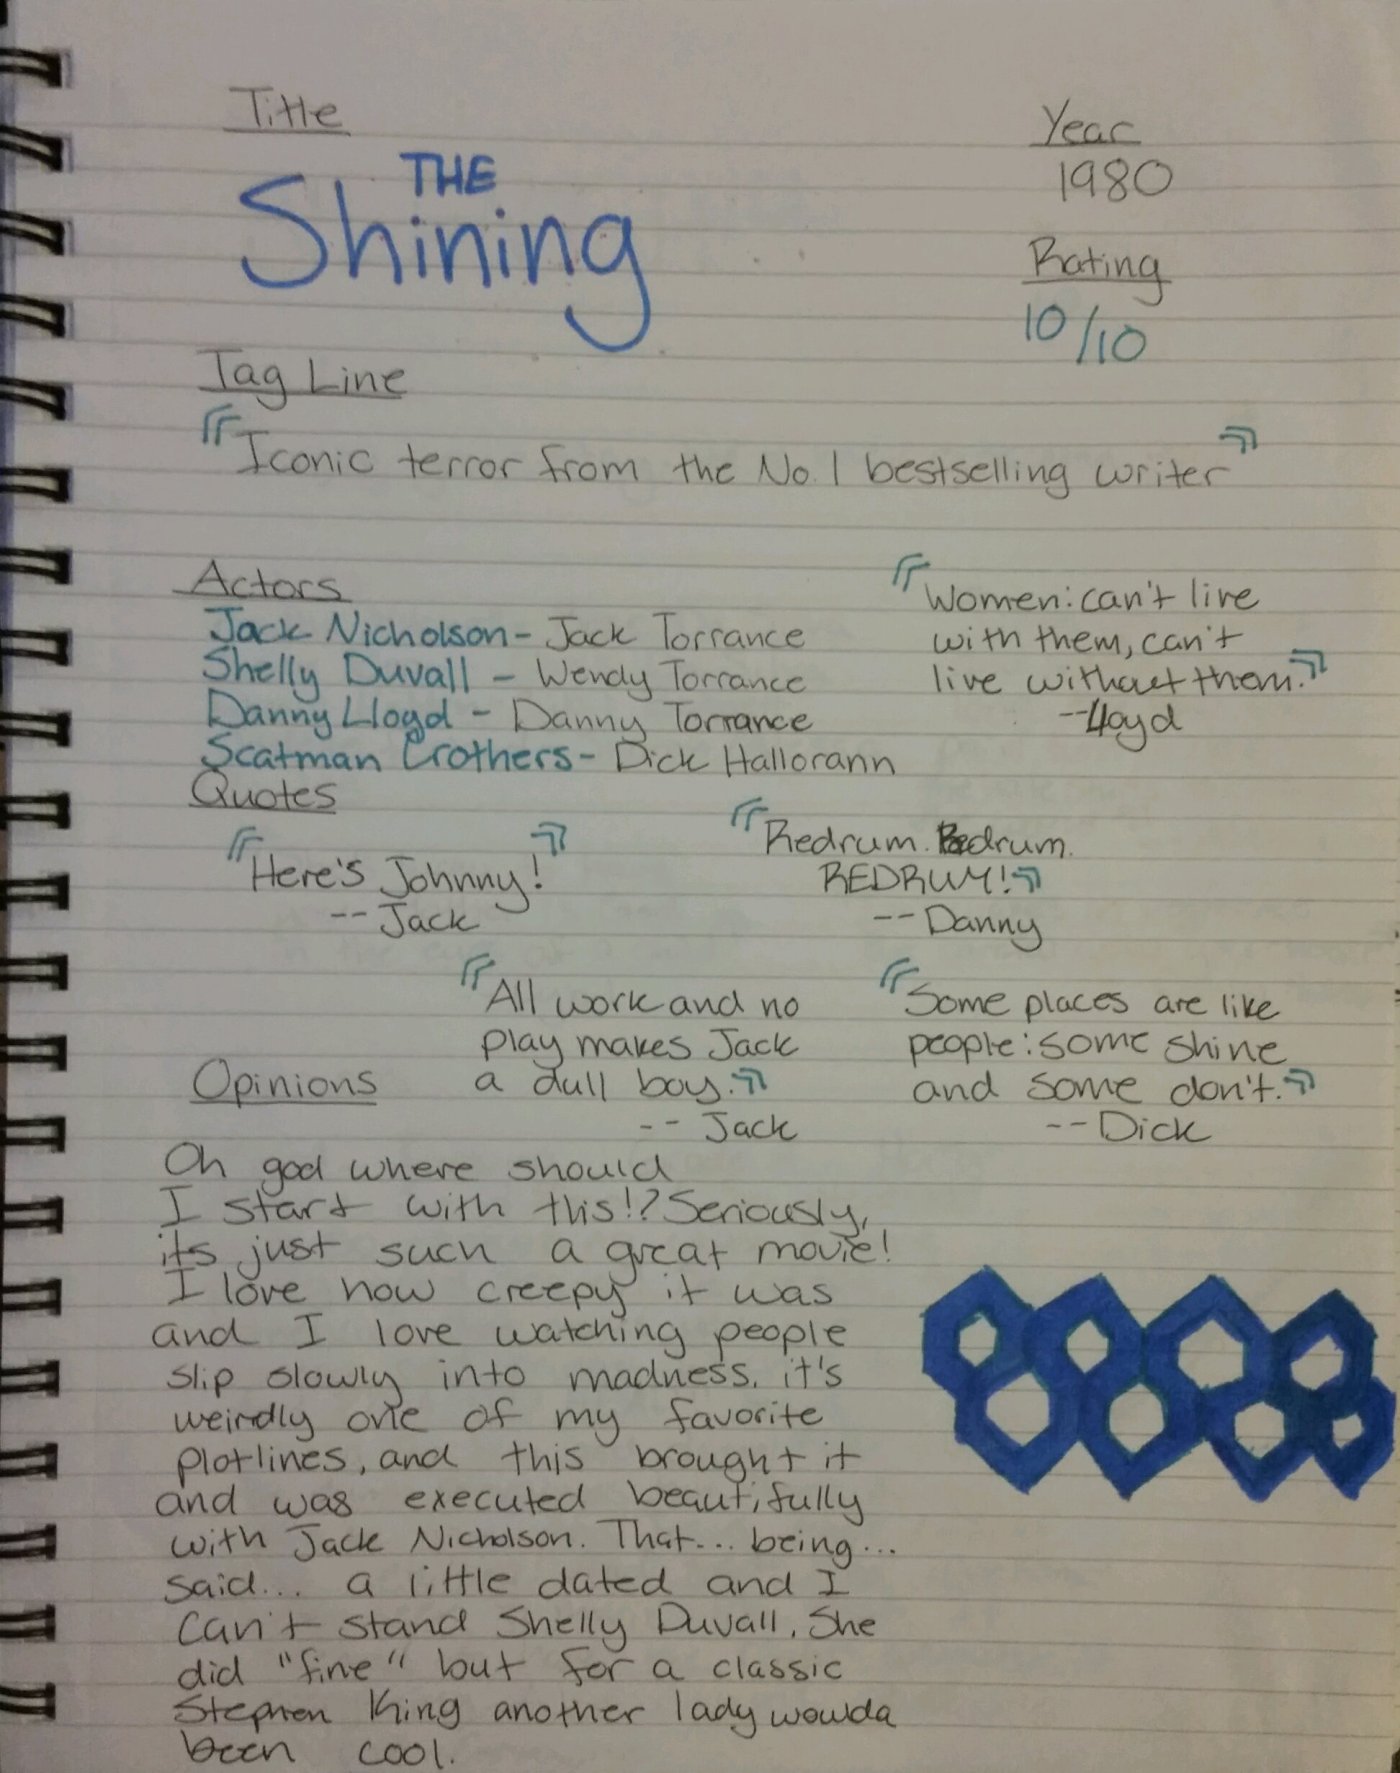 Title
THE
Shining
Year
1980
Rating
10/10
Tag Line
"Iconic terror from the No. 1 bestselling writer"
Actors
Jack Nicholson - Jack Torrance
Shelly Duvall - Wendy Torrance
Danny Lloyd - Danny Torrance
Scatman Crothers - Dick Hallorann
"Women: can't live
with them, can't
live without them."
--Lloyd
Quotes
"Here's Johnny!"
-- Jack
"Redrum. Redrum.
REDRUM!"
-- Danny
"All work and no
play makes Jack
a dull boy."
-- Jack
"Some places are like
people: some shine
and some don't."
-- Dick
Opinions
Oh god where should
I start with this!? Seriously,
its just such a great movie!
I love how creepy it was
and I love watching people
slip slowly into madness. it's
weirdly one of my favorite
plotlines, and this brought it
and was executed beautifully
with Jack Nicholson. That... being...
said... a little dated and I
can't stand Shelly Duvall. She
did "fine" but for a classic
Stephen King another lady wowda
been cool.